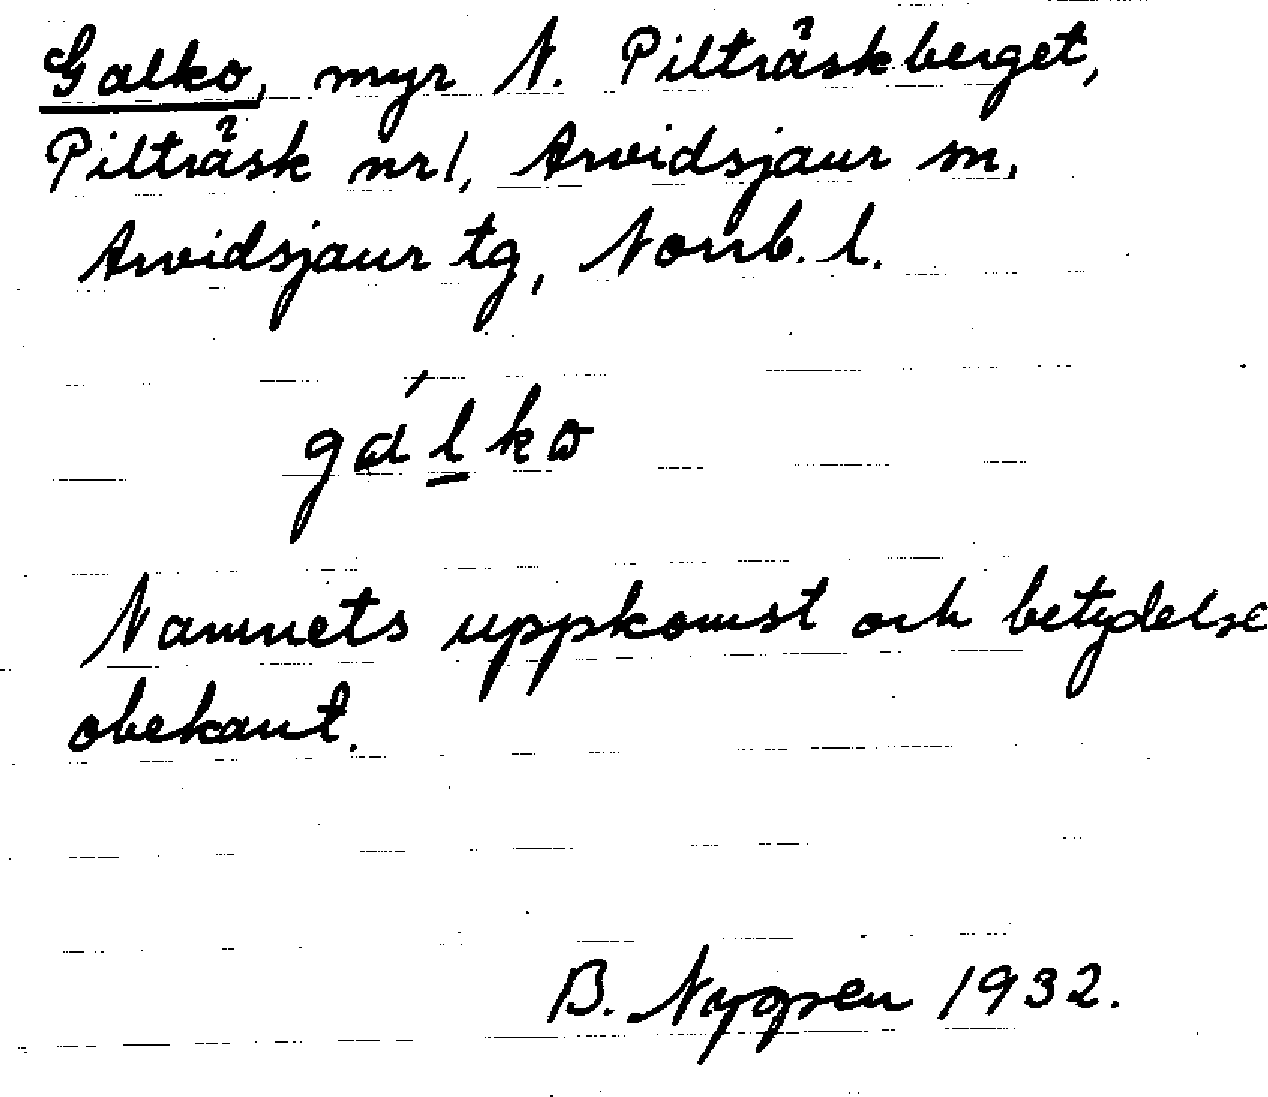 Galko, myr N. Pilträskberget,
Pilträsk nr 1, Arvidsjaur sn,
Arvidsjaur tg, Norrb. l.
gálko
Namnets uppkomst och betydelse
obekant.
B. Nygren 1932.